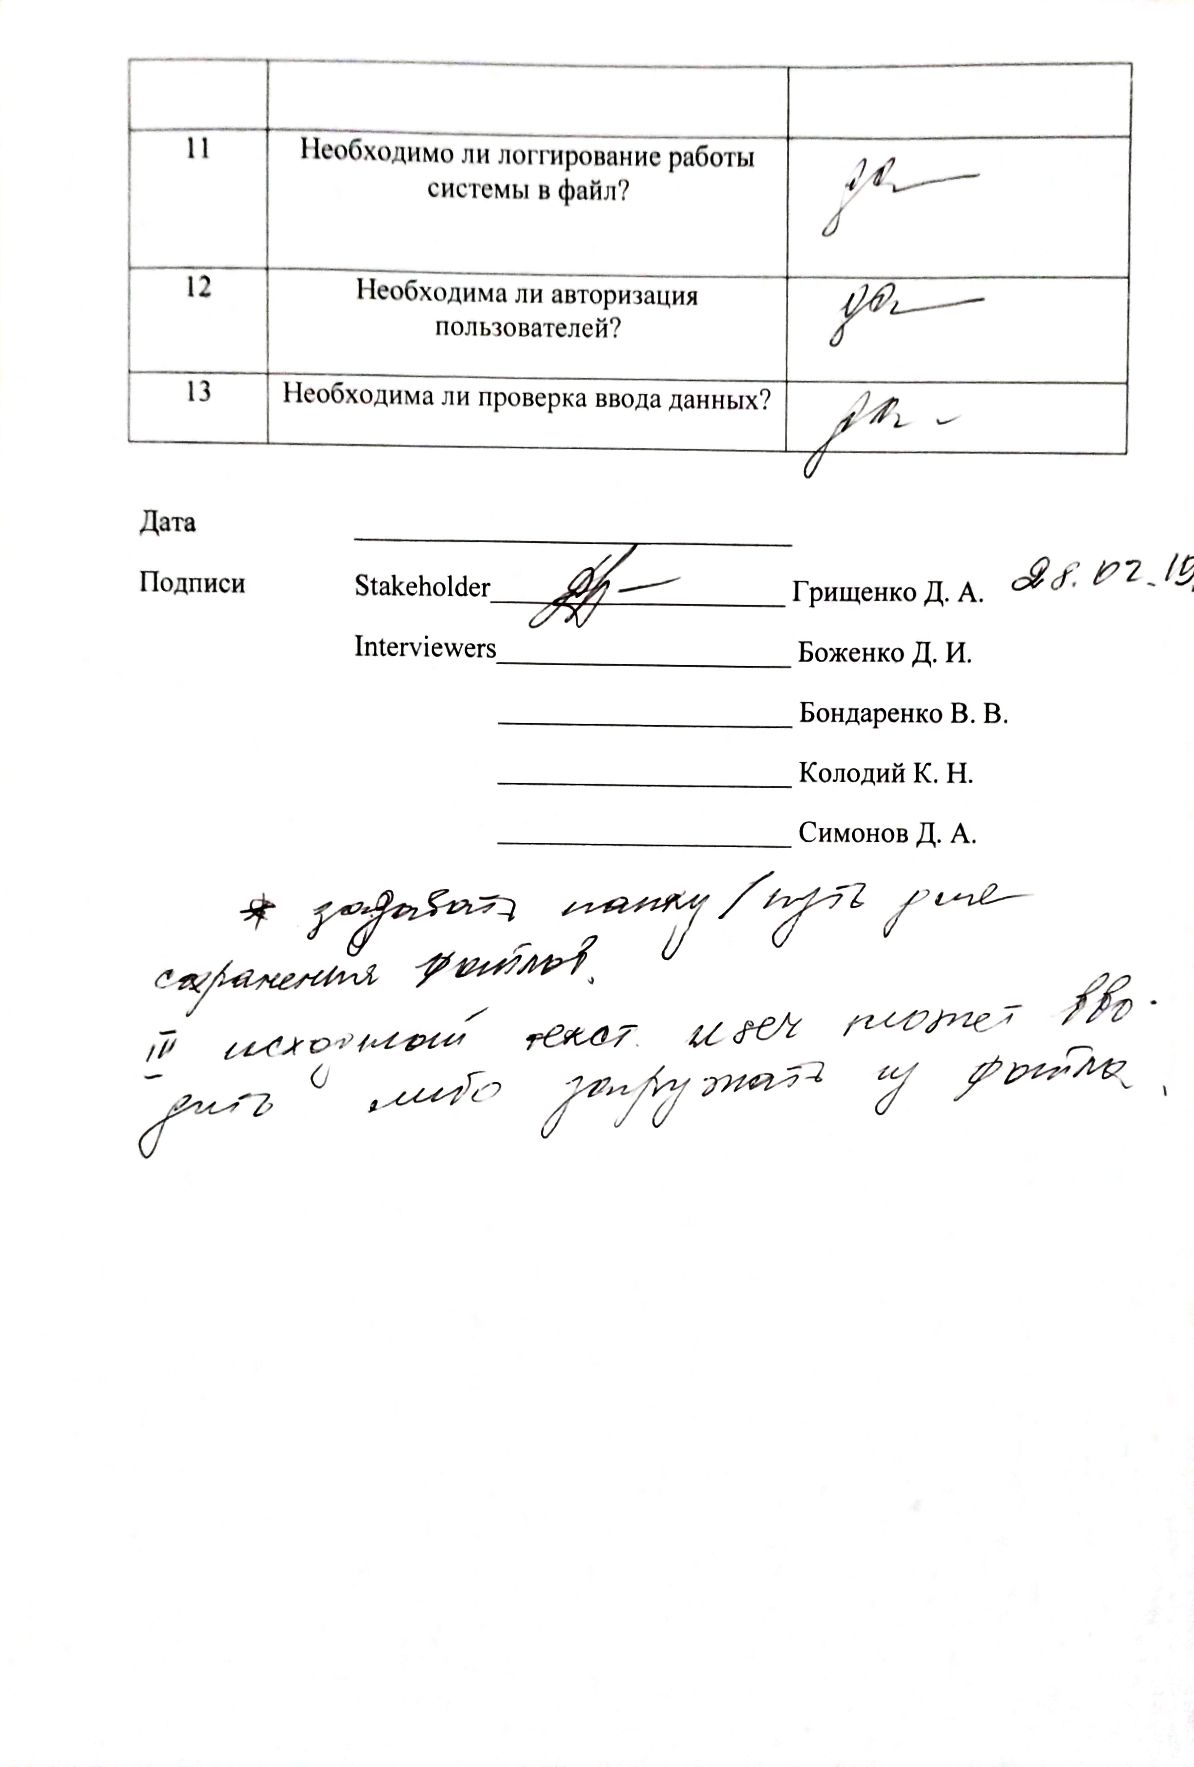 11 Необходимо ли логгирование работы да
системы в файл?
12 Необходима ли авторизация да
пользователей?
13 Необходима ли проверка ввода данных? да
Дата
Подписи Stakeholder Грищенко Д. А. 28.02.19
Interviewers Боженко Д. И.
Бондаренко В. В.
Колодий К. Н.
Симонов Д. А.
* задавать папку/путь для
сохранения файлов.
исходный текст может вво-
дить либо загружать из файла.